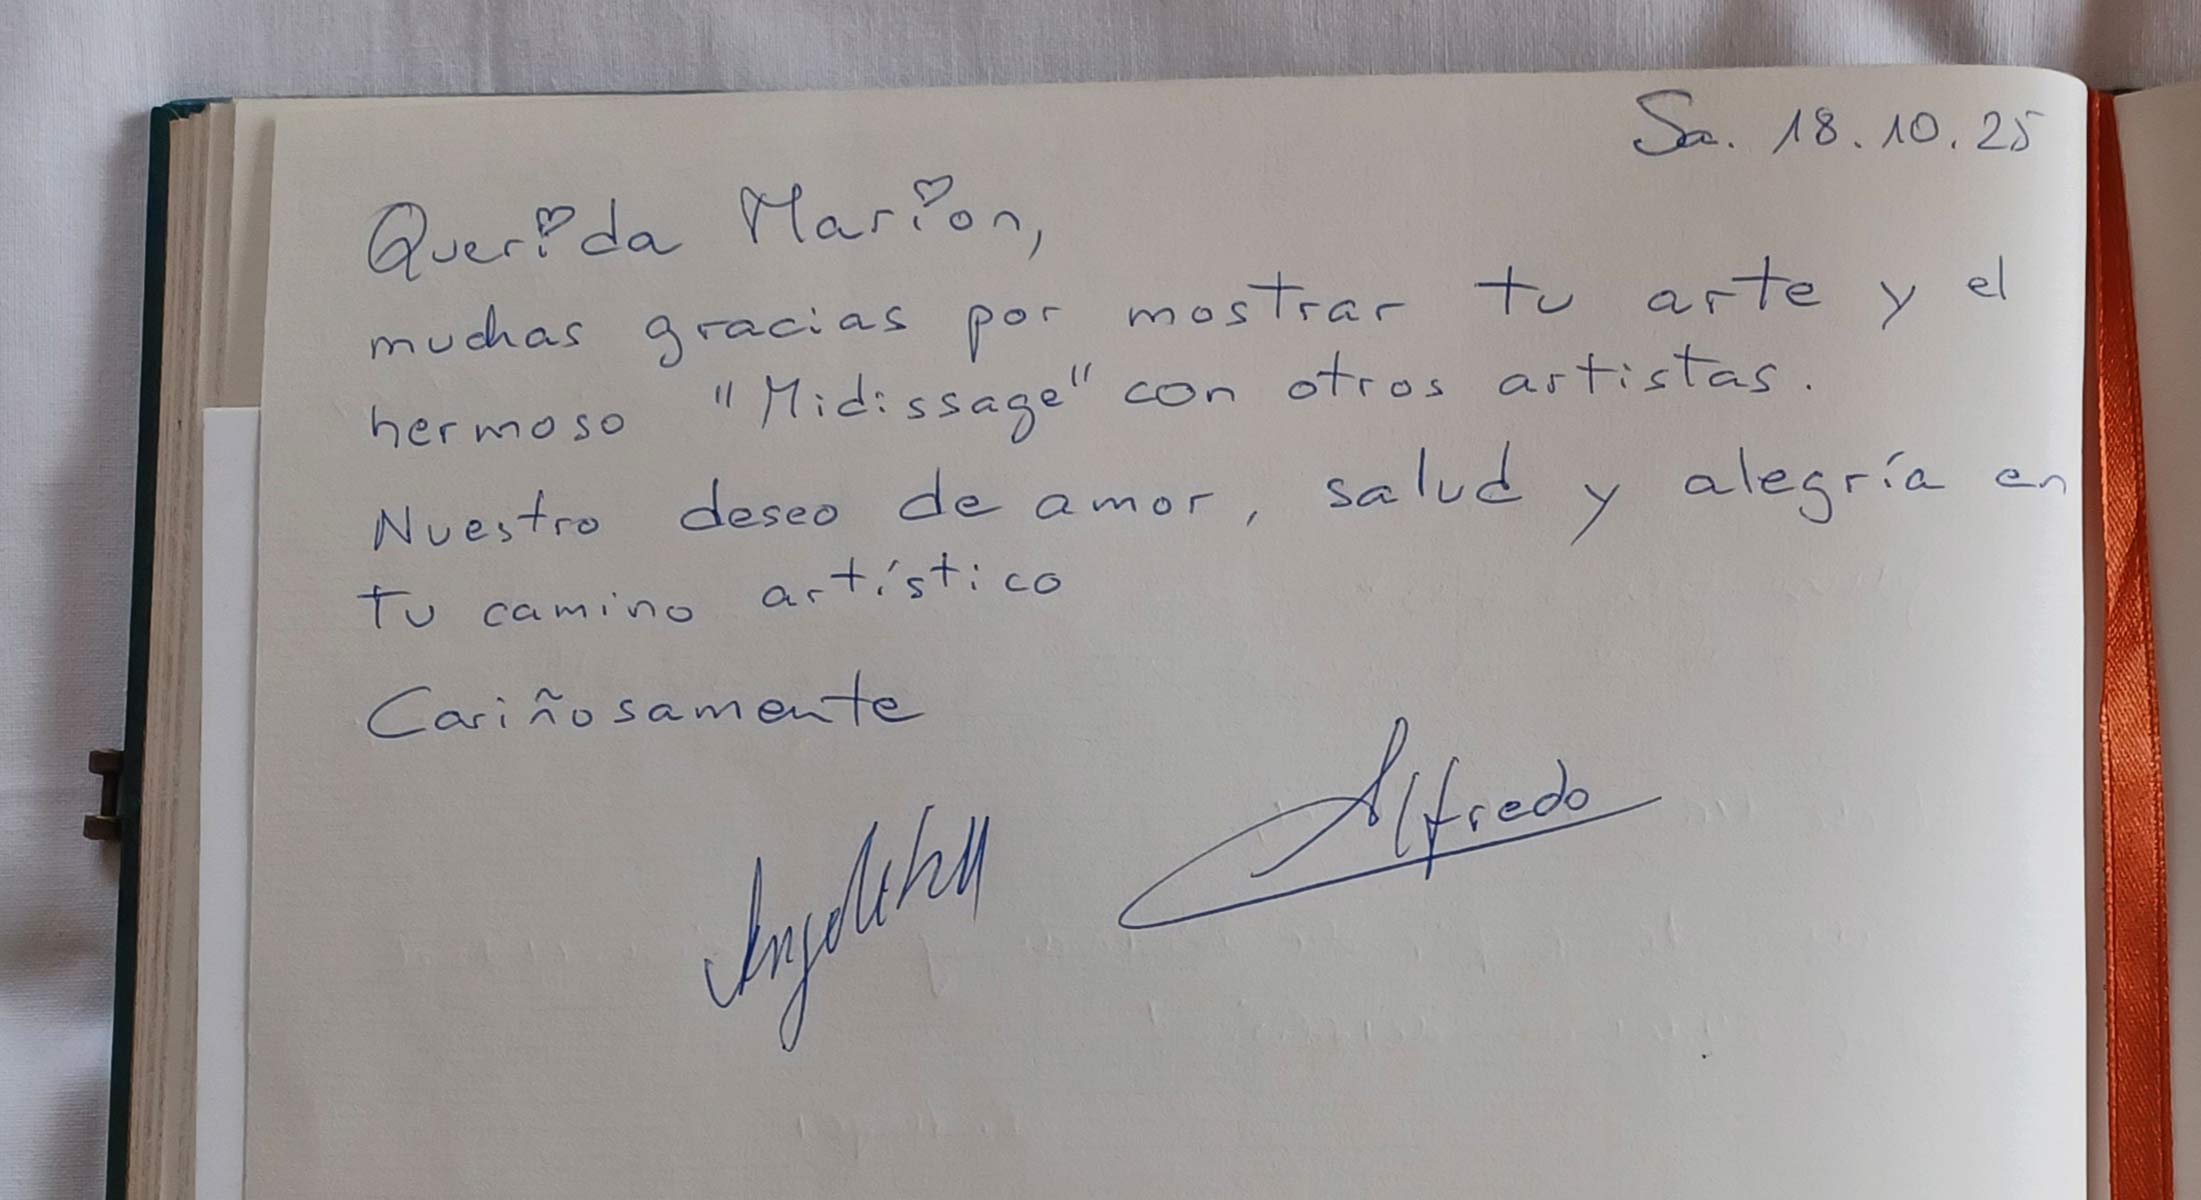 Sa. 18.10.25
Querida Marion,
muchas gracias por mostrar tu arte y el
hermoso "Midissage" con otros artistas.
Nuestro deseo de amor, salud y alegría en
tu camino artístico
Cariñosamente
Alfredo